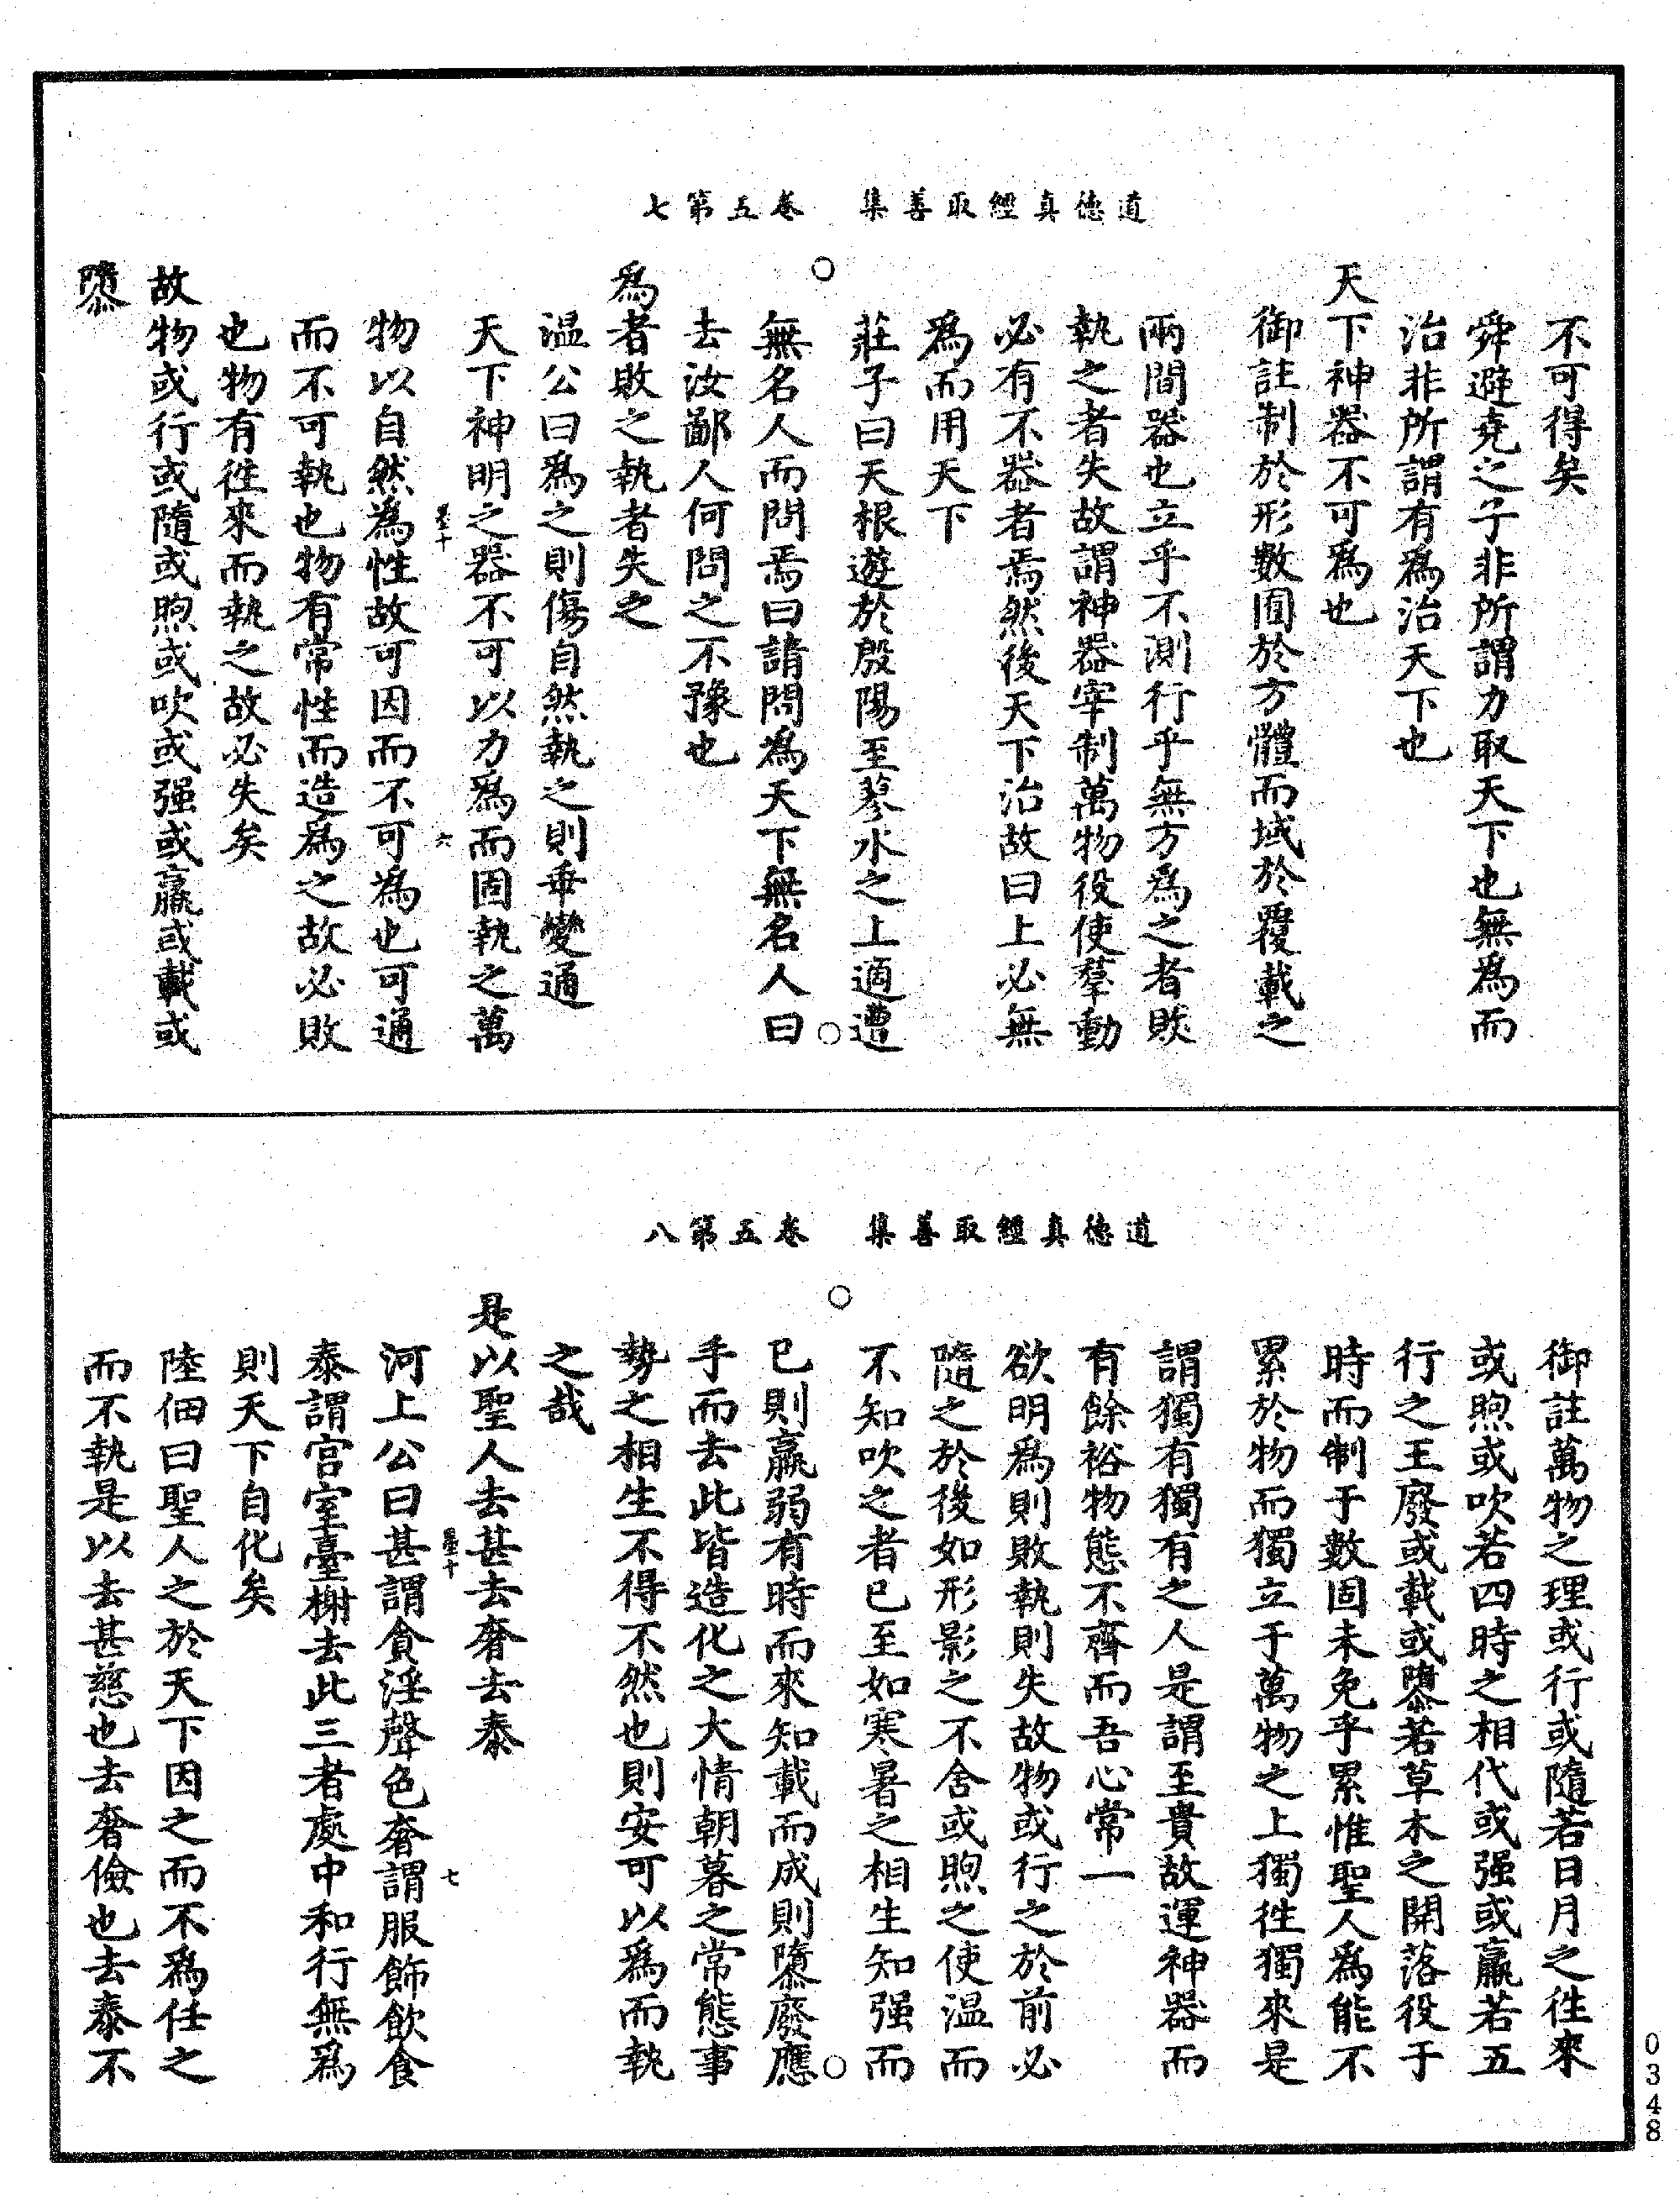 道德真經取善集　卷五第七
不可得矣
舜避堯之子非所謂力取天下也無爲而
治非所謂有爲治天下也
天下神器不可爲也
御註制於形數囿於方體而域於覆載之
兩間器也立乎不測行乎無方爲之者敗
執之者失故謂神器宰制萬物役使羣動
必有不器者焉然後天下治故曰上必無
爲而用天下
莊子曰天根遊於殷陽至蓼水之上適遭
無名人而問焉曰請問爲天下無名人曰
去汝鄙人何問之不豫也
爲者敗之執者失之
温公曰爲之則傷自然執之則乖變通
天下神明之器不可以力爲而固執之萬
六
物以自然爲性故可因而不可爲也可通
而不可執也物有常性而造爲之故必敗
也物有徃來而執之故必失矣
故物或行或隨或煦或吹或强或羸或載或
隳
道德真經取善集　卷五第八
御註萬物之理或行或隨若日月之徃來
或煦或吹若四時之相代或强或羸若五
行之王廢或載或隳若草木之開落役于
時而制于數固未免乎累惟聖人爲能不
累於物而獨立于萬物之上獨徃獨來是
謂獨有獨有之人是謂至貴故運神器而
有餘裕物態不齊而吾心常一
欲明爲則敗執則失故物或行之於前必
隨之於後如形影之不舍或煦之使温而
不知吹之者已至如寒暑之相生知强而
已則羸弱有時而來知載而成則隳廢應
手而去此皆造化之大情朝暮之常態事
勢之相生不得不然也則安可以爲而執
之哉
是以聖人去甚去奢去泰
河上公曰甚謂貪淫聲色奢謂服飾飲食
七
泰謂宫室臺榭去此三者處中和行無爲
則天下自化矣
陸佃曰聖人之於天下因之而不爲任之
而不執是以去甚慈也去奢儉也去泰不
0348